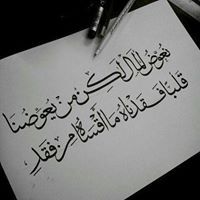 نُعَوِّضُ المَالَ لَكِنْ مَنْ يُعَوِّضُنَا
قَلْبًا فَقَدْنَاهُ مَا أَقْسَاهُ مِنْ فَقْدِ